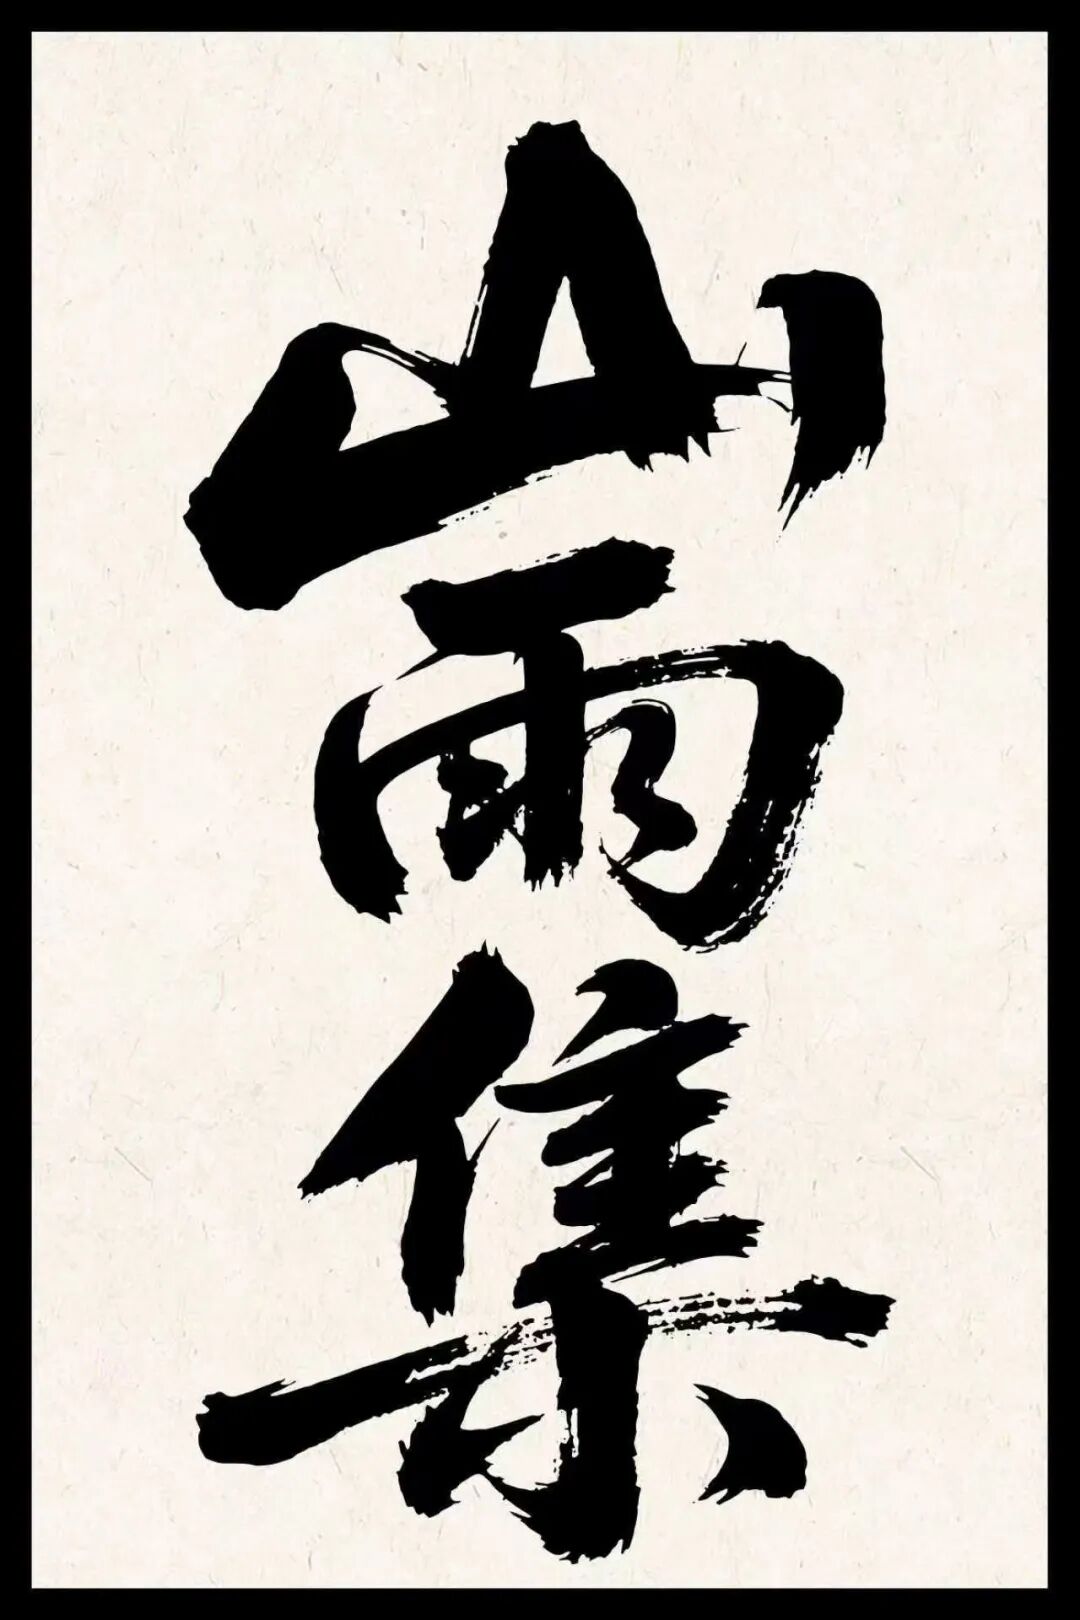 山雨集